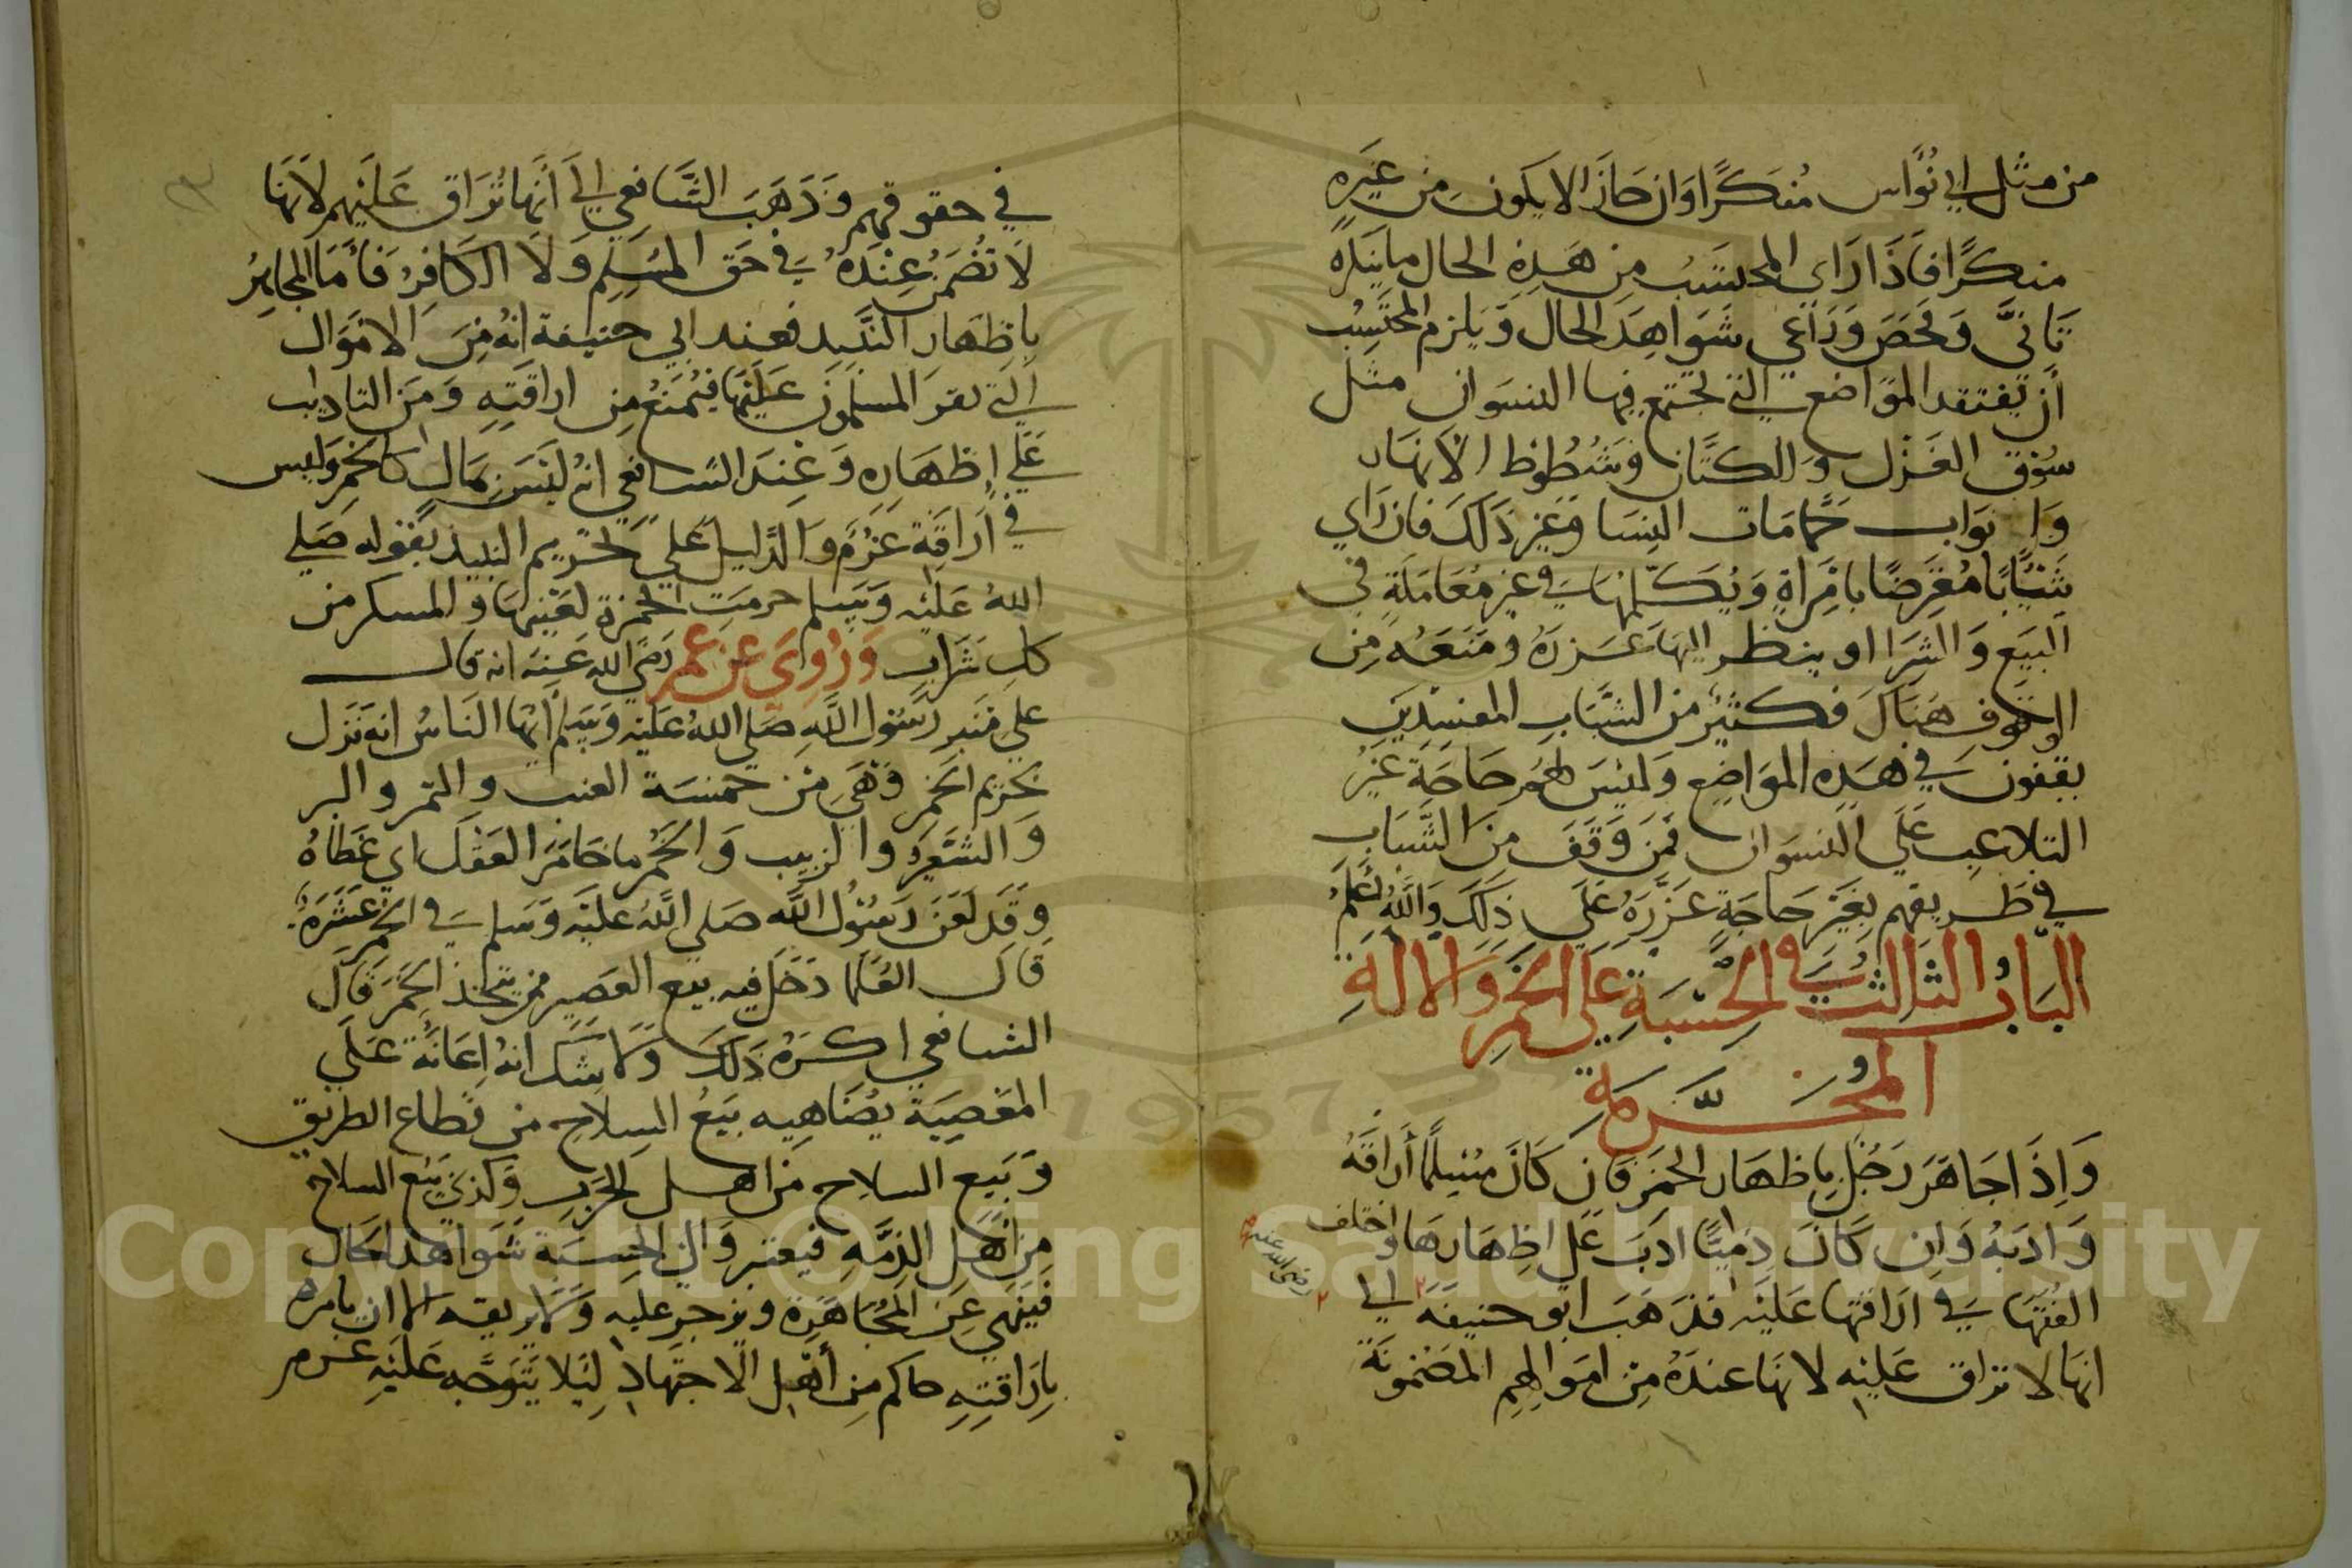 من مثل ابي نُوَّاس مُنكَرًا وَان جَازَ الا يكون مِن غَيره
منكرًا فَاذَا رَاى المحتسب مِن هَذِهِ الحال ما ينكره
تَانَّى وَفحَصَ وَرَاعي شَوَاهِدَ الحَال وَيلزم المحتَسِب
أن يَفتقد المَوَاضع التي تجتمع فيها النسوان مثل
سُوق الغَزل وَالكتَّان وشُطُوط الانهَار
وَابوَاب حَمَّامَات النِسَا وَغير ذَلكَ فان رَاي
شَابًّا مُعَرِّضًا بامرَاةٍ وَيُكَلِّمُهَا في غير مُعَامَلَةٍ في
البَيَع وَالشرَا او ينظر اليهَا عَزرَهُ ومَنَعَهُ مِن
الوقوف هنَاك فكثير من الشَّبَابِ المفسدين
يقفون في هَذِه المَوَاضِع وَليسَ لهُم حَاجَة غَيرُ
التلاعب عَلي النسوان فمَن وَقَفَ مِن الشَّبَاب
في طريقهم بغَير حَاجَةٍ عَزَّرَهُ عَلى ذلكَ وَاللهُ اعلمُ
البَابُ الثالثُ في الحِسْبَةِ عَلَى الخَمرِ وَالالَةِ
المُحَرَّمَة
وَاِذَا جَاهَرَ رَجُل باِظهَار الخمَر فَان كَانَ مُسْلِمًا أَرَاقَهُ
وَادبَهُ وَاِن كَانَ ذِميًّا ادبَ عَلى اظِهَارهَا واختلف
الفقهَا في اراقتها عَليَه فذهَبَ ابو حنيفَة الي
رضى الله عنه
انهَا لا تراق عَليه لانهَا عندَهُ مِن امَوَالهِم المَضمونَة
في حقوقهم وَذَهَبَ الشَّافعي الي أَنهَا تُرَاق عَليهم لانهَا
لا تُضمَنُ عِندَهُ في حَق المُسْلِم وَلا الكَافِر فَأمَا المجَاهِرُ
باظهَار النبيذ فعند ابي حنيفة انهُ مِنَ الامَوال
التي يقر المسلمون عَلَيهَا فيُمنَعُ مِن اراقَتِهِ وَمِنَ التاديب
عَلَي اِظهَاره وَعِندَ الشافعي انهُ ليسَ بمَال كالخَمر وَليس
في اَرَاقَة عَزْم وَالدَّليل عَلي تحريم النبيذ بقوله صَلي
اللهُ عَليْه وَسَلم حرمت الخمرة لعَينهَا والمسكر من
كل شرابٍ وَرُوِيَ عن عُمر رَضي الله عَنه انه قال
علي منبر رَسُول اللَّه صَلي اللهُ عَليْه وَسَلم ايها النَاسُ انه نَزل
تحريم الخمر وَهَي مِن خمسَة العنب والتمر والبر
وَالشَعِير والزبيب وَالخَمْر ما خَامَرَ العَقل اي غَطاهُ
وقد لعَنَ رَسُول اللَّه صَلي اللَّه عَليْه وَسَلم في الخمر عَشَرَةً
قَال العُلَمَا دَخَل فيه بيع العَصِير ممن يتخذ الخَمر قَالَ
الشافعي اكرَهُ ذَلكَ وَلا شَك انهُ اعَانَةً عَلَي
المَعصِيَة يُضَاهِيه بيَعُ السِلاح من قطاع الطريق
وَبَيع السلاح من اهل الحَرب وَكَذلك بيَع السلاح
مِن اهل الذِمَّهِ فيعتبر وَالي الحِسبَة شَوَاهد الحَال
فيَنهي عن المُجَاهَرَة ويزجر عليه وَلا يريقه الا ان يامره
باِرَاقتِهِ حاكم مِن أهْل الاجتهَاد لِئَلا يَتَوَجَّه عَلَيه غرم